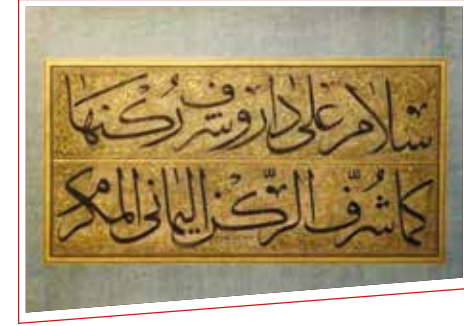 سلام على دار وشرف ركنها
كما شُرِّف الرّكن اليماني المكرم